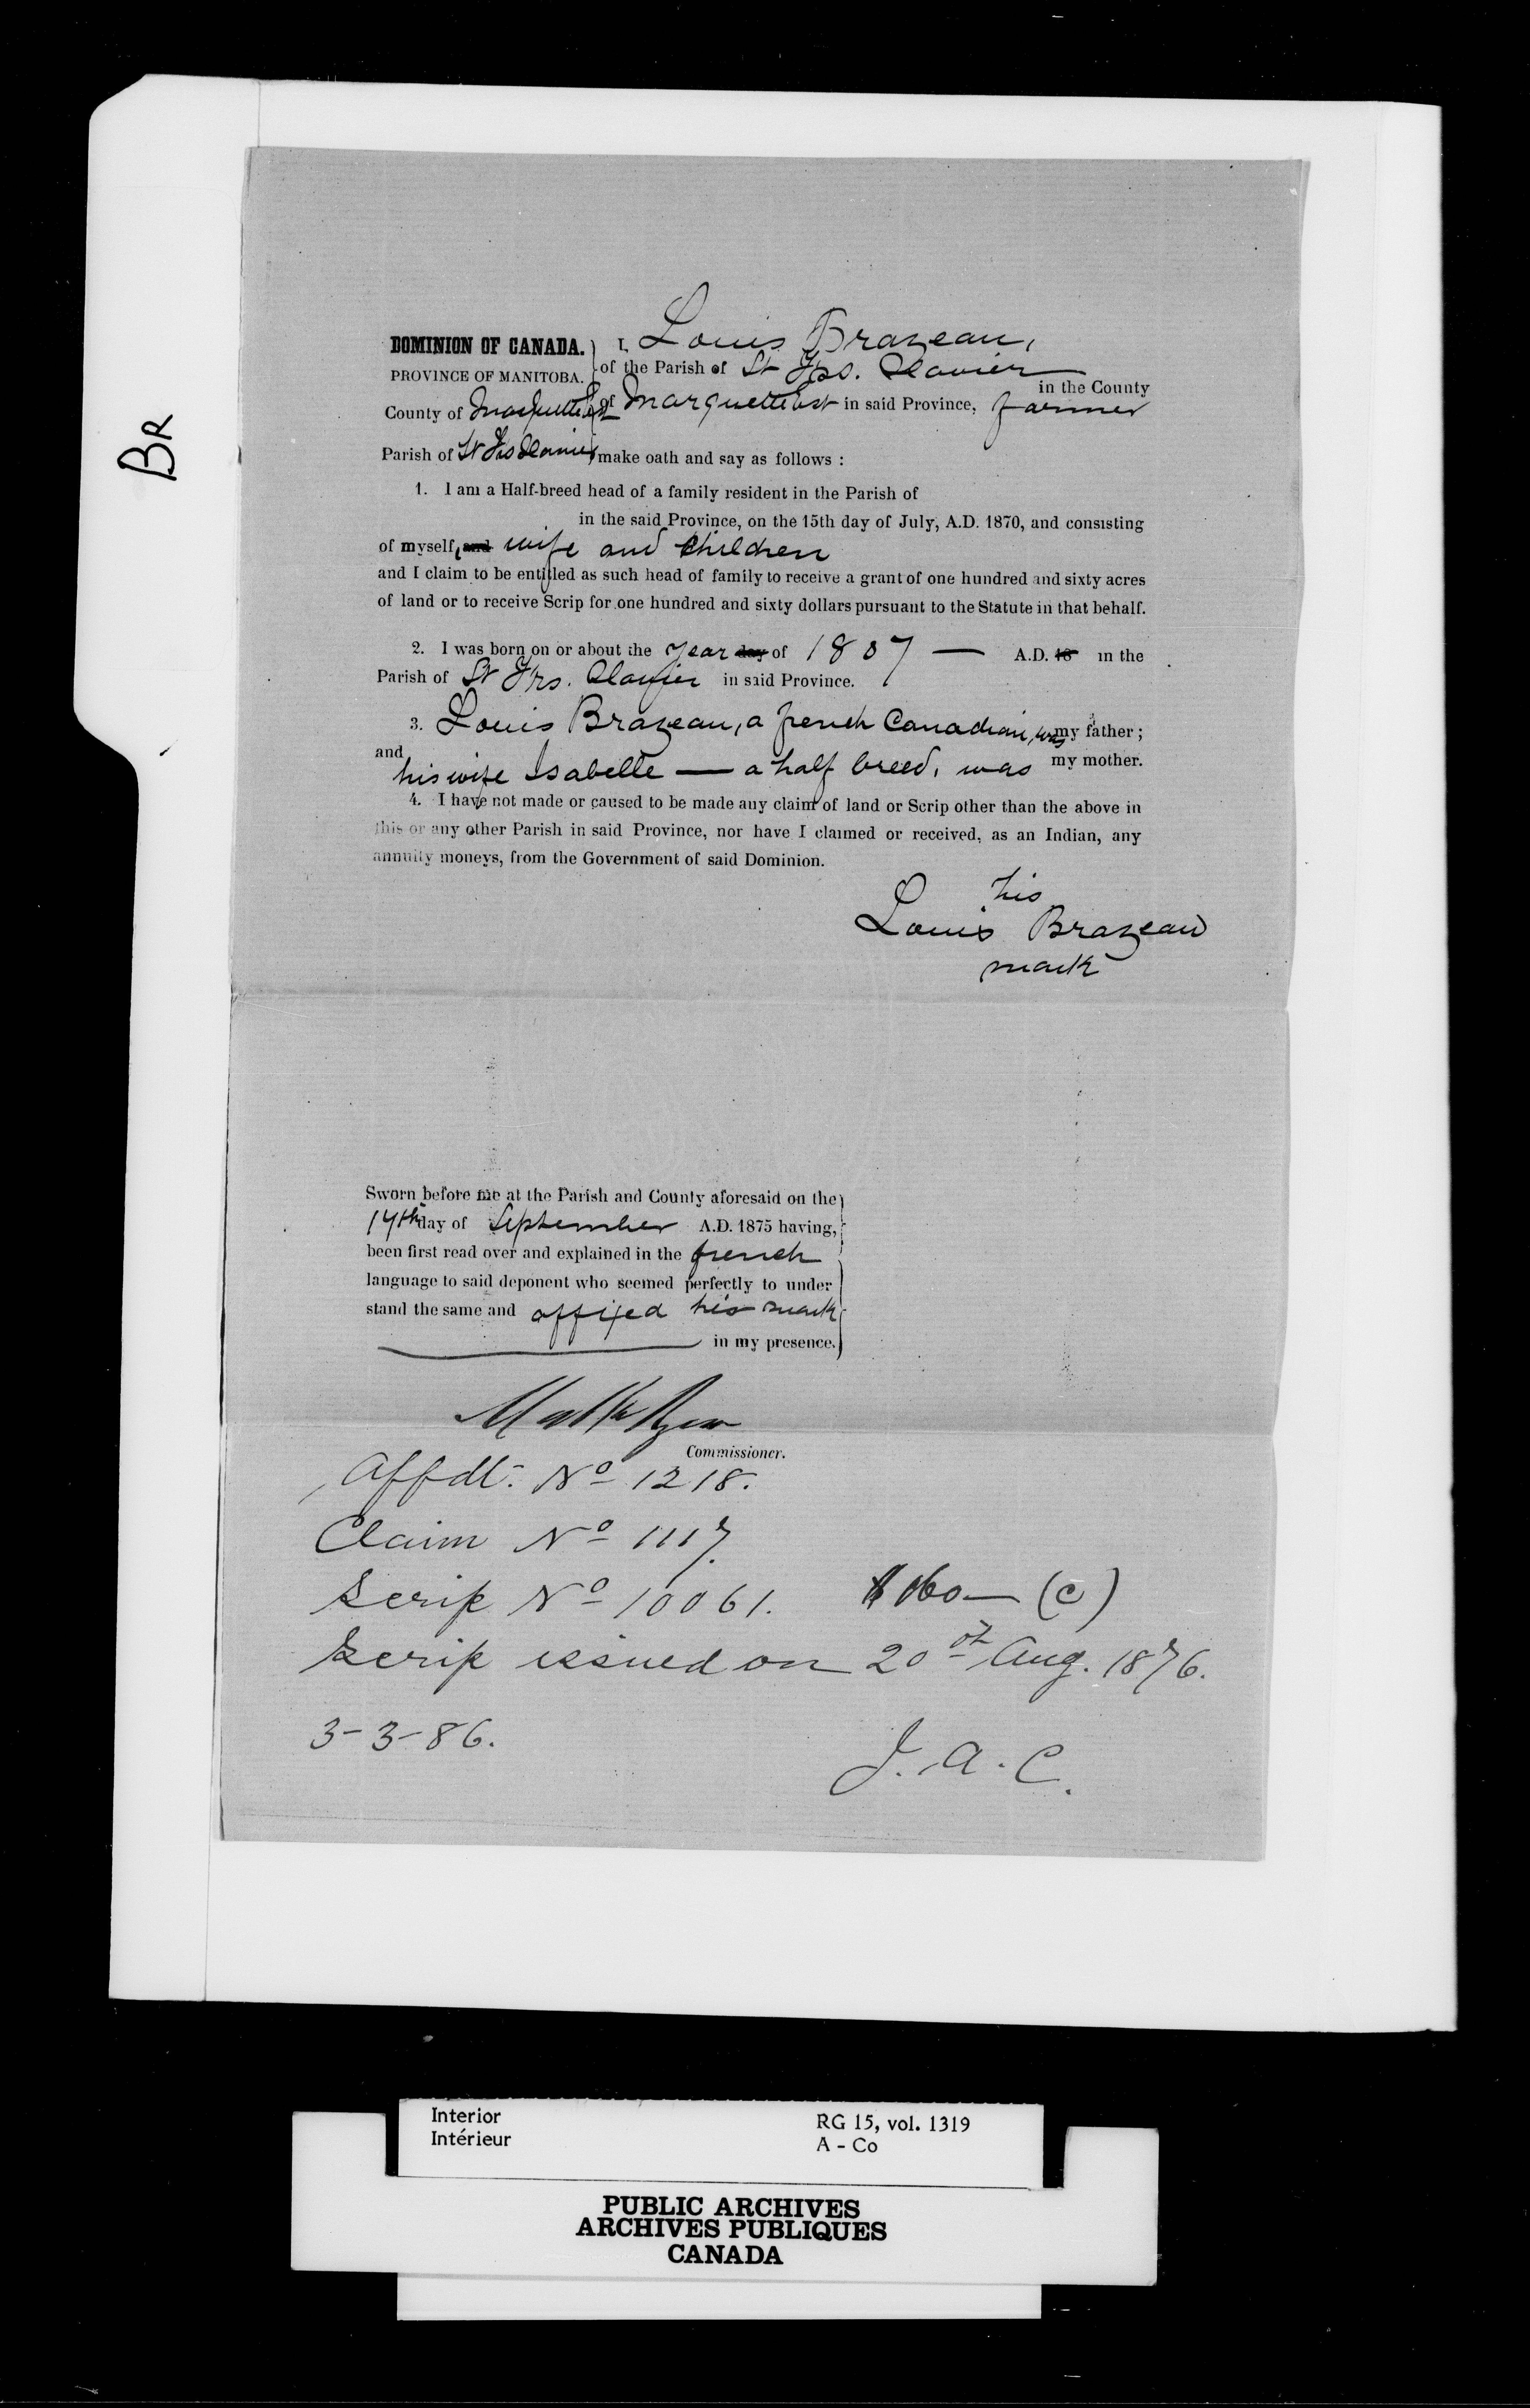 BR
DOMINION OF CANADA. I, Louis Brazeau,
PROVINCE OF MANITOBA. of the Parish of St Frs. Xavier in the County
County of Marquette Est of Marquette Est in said Province, farmer
Parish of St Frs Xavier make oath and say as follows :
1. I am a Half-breed head of a family resident in the Parish of
in the said Province, on the 15th day of July, A.D. 1870, and consisting
of myself, and wife and children
and I claim to be entitled as such head of family to receive a grant of one hundred and sixty acres
of land or to receive Scrip for one hundred and sixty dollars pursuant to the Statute in that behalf.
2. I was born on or about the year day of 1807 — A.D. 18 in the
Parish of St Frs. Xavier in said Province.
3. Louis Brazeau, a french Canadian, was my father ;
and his wife Isabelle — a half breed, was my mother.
4. I have not made or caused to be made any claim of land or Scrip other than the above in
this or any other Parish in said Province, nor have I claimed or received, as an Indian, any
annuity moneys, from the Government of said Dominion.
his
Louis x Brazeau
mark
Sworn before me at the Parish and County aforesaid on the
14th day of September A.D. 1875 having,
been first read over and explained in the french
language to said deponent who seemed perfectly to under
stand the same and affixed his mark
in my presence.
Commissioner.
Affdt. No 1218.
Claim No 1117.
Scrip No 10061. $160— (c)
Scrip issued on 20th Aug. 1876.
3-3-86.
J. A. C.
Interior
Intérieur
RG 15, vol. 1319
A - Co
PUBLIC ARCHIVES
ARCHIVES PUBLIQUES
CANADA